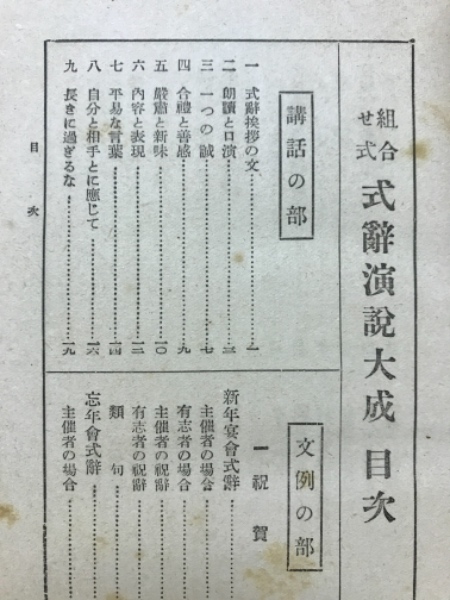 組合せ式 式辭演說大成 目次
講話の部
一 式辭挨拶の文……一
二 朗讀と口演……三
三 一つの誠……七
四 合禮と善感……九
五 嚴肅と新味……一〇
六 內容と表現……一二
七 平易な言葉……一四
八 自分と相手とに應じて……一六
九 長きに過ぎるな……一九
目次
文例の部
一 祝賀
新年宴會式辭……
主催者の場合……
有志者の場合……
主催者の祝辭……
有志者の祝辭……
類句……
忘年會式辭……
主催者の場合……